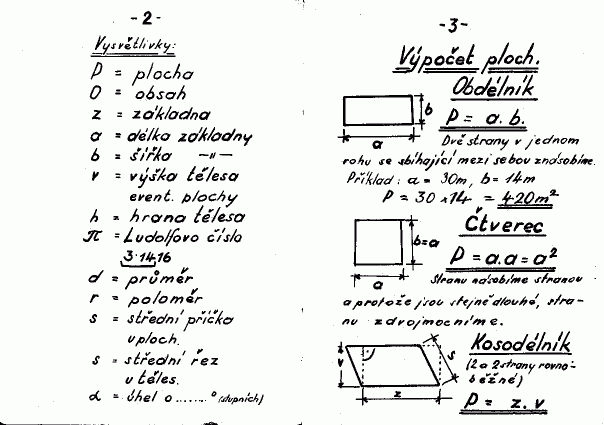 - 2 -
Vysvětlivky:
P = plocha
O = obsah
z = základna
a = délka základny
b = šířka —"—
v = výška tělesa
event. plochy
h = hrana tělesa
π = Ludolfovo číslo
3·1416
d = průměr
r = poloměr
s = střední příčka
u ploch.
s = střední řez
u těles.
α = úhel o ........° (stupních)
- 3 -
Výpočet ploch.
Obdélník
b
a
P = a.b.
Dvě strany v jednom
rohu se sbíhající mezi sebou znásobíme.
Příklad: a = 30m, b = 14m
P = 30 x 14 = 420m²
Čtverec
b=a
a
P = a.a = a²
Stranu násobíme stranou
a protože jsou stejně dlouhé, stra-
nu zdvojmocníme.
Kosodélník
v
s
z
(2 a 2 strany rovno-
běžné)
P = z.v